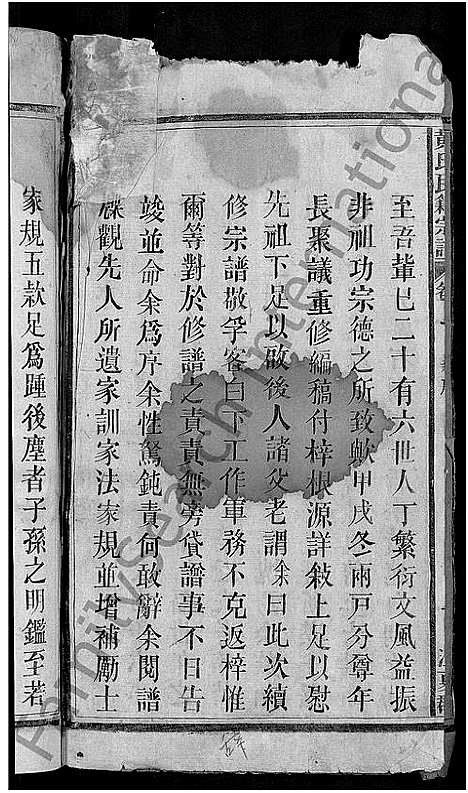 至吾輩已二十有六世人丁繁衍文風益振
非祖功宗德之所致歟甲戌冬兩戸分尊年
長聚議重修編稿付梓根源詳敍上足以慰
先祖下足以啟後人諸父老謂余曰此次續
修宗譜敬孚客白下工作軍務不克返梓惟
爾等對於修譜之責責無旁貸譜事不日告
竣並命余爲序余性駑鈍責何敢辭余閱譜
牒觀先人所遺家訓家法家規並增補勵士
家規五款足爲踵後塵者子孫之明鑑至若
FamilySearch International